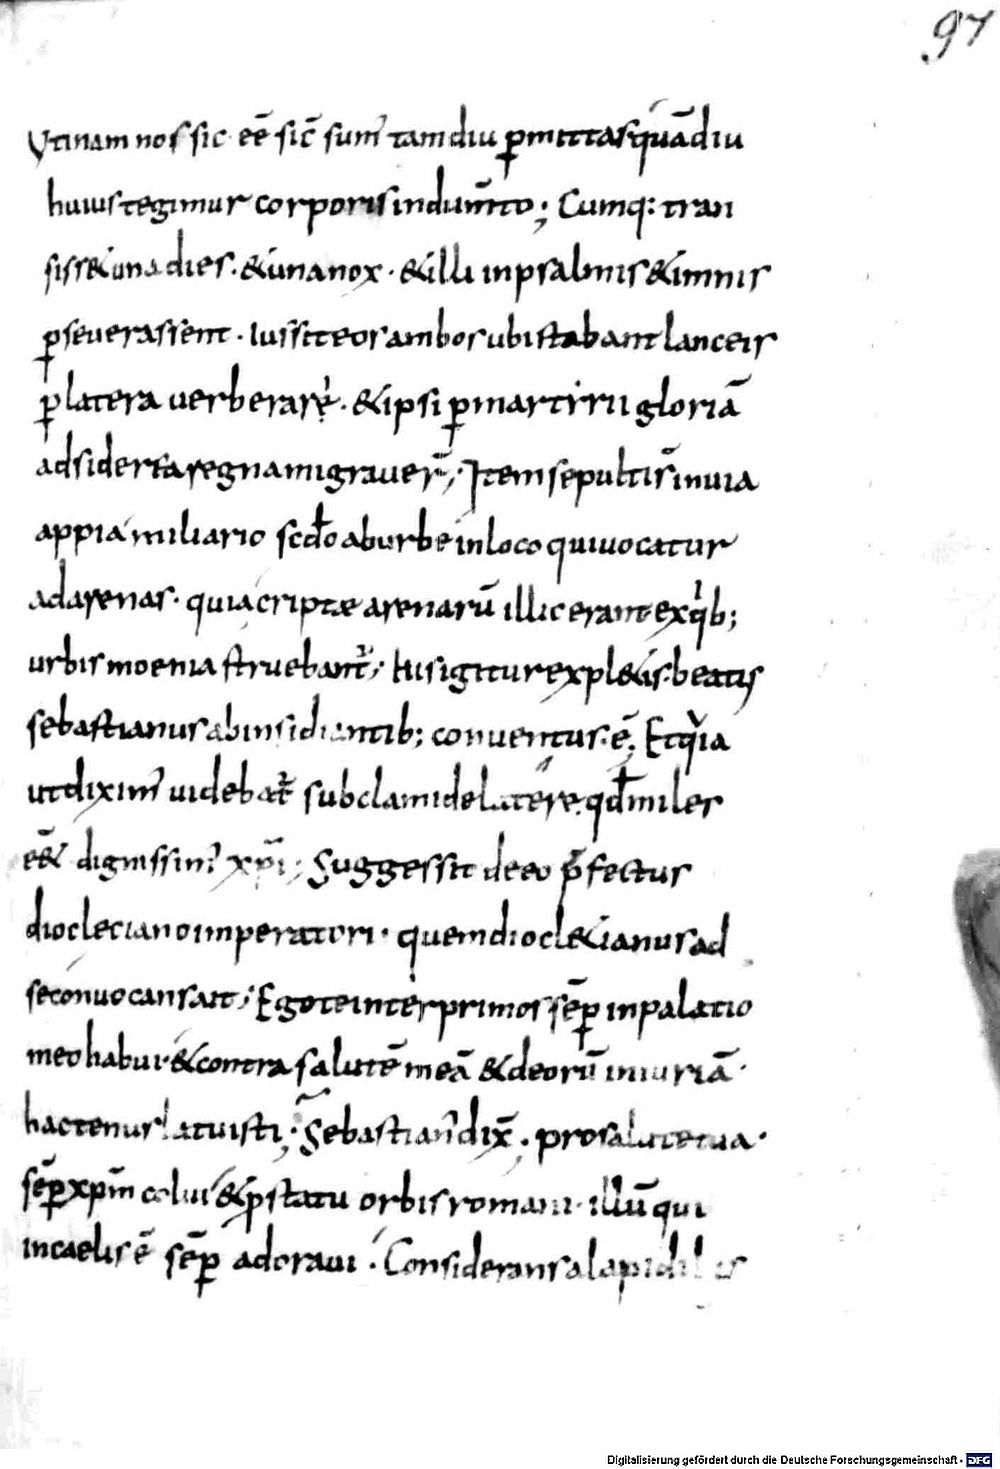 97
Vtinam nos sic eē sič sum' tamdiu p̄mittas quādiu
huius tegimur corporis indum̄to; Cumq: tran
siss& una dies. & una nox. & illi in psalmis & imnis
p̱seuerassent. Iussit eos ambos ubi stabant lanceis
p̱ latera uerberare. & ipsi p̱ martirii gloriā
ad siderea regna migrauer̄; Item sepulti s̄ in uia
appia miliario scd̄o ab urbe in loco qui uocatur
ad arenas. quia criptæ arenarū illic erant ex qib;
urbis moenia struebant'; His igitur expl&is. beatus
sebastianus ab insidiantib; conuentus. ē; Et qia
ut dixim' uidebat' sub clamide latere. qd̄ miles
eē& dignissim' xp̄i; Suggessit de eo p̄fectus
diocleciano imperatori. quem diocl&ianus ad
se conuocans ait; Ego te inter primos sēp̱ in palatio
meo habui. & contra salutē meā & deorū iniuriā.
hactenus latuisti; Sebastian' dix̄. pro salute tua.
sēp̱ xp̄m colui & p̄ statu orbis romani. illū qui
in caelis ē sēp̱ adoraui. Considerans a lapidibus
Digitalisierung gefördert durch die Deutsche Forschungsgemeinschaft - DFG